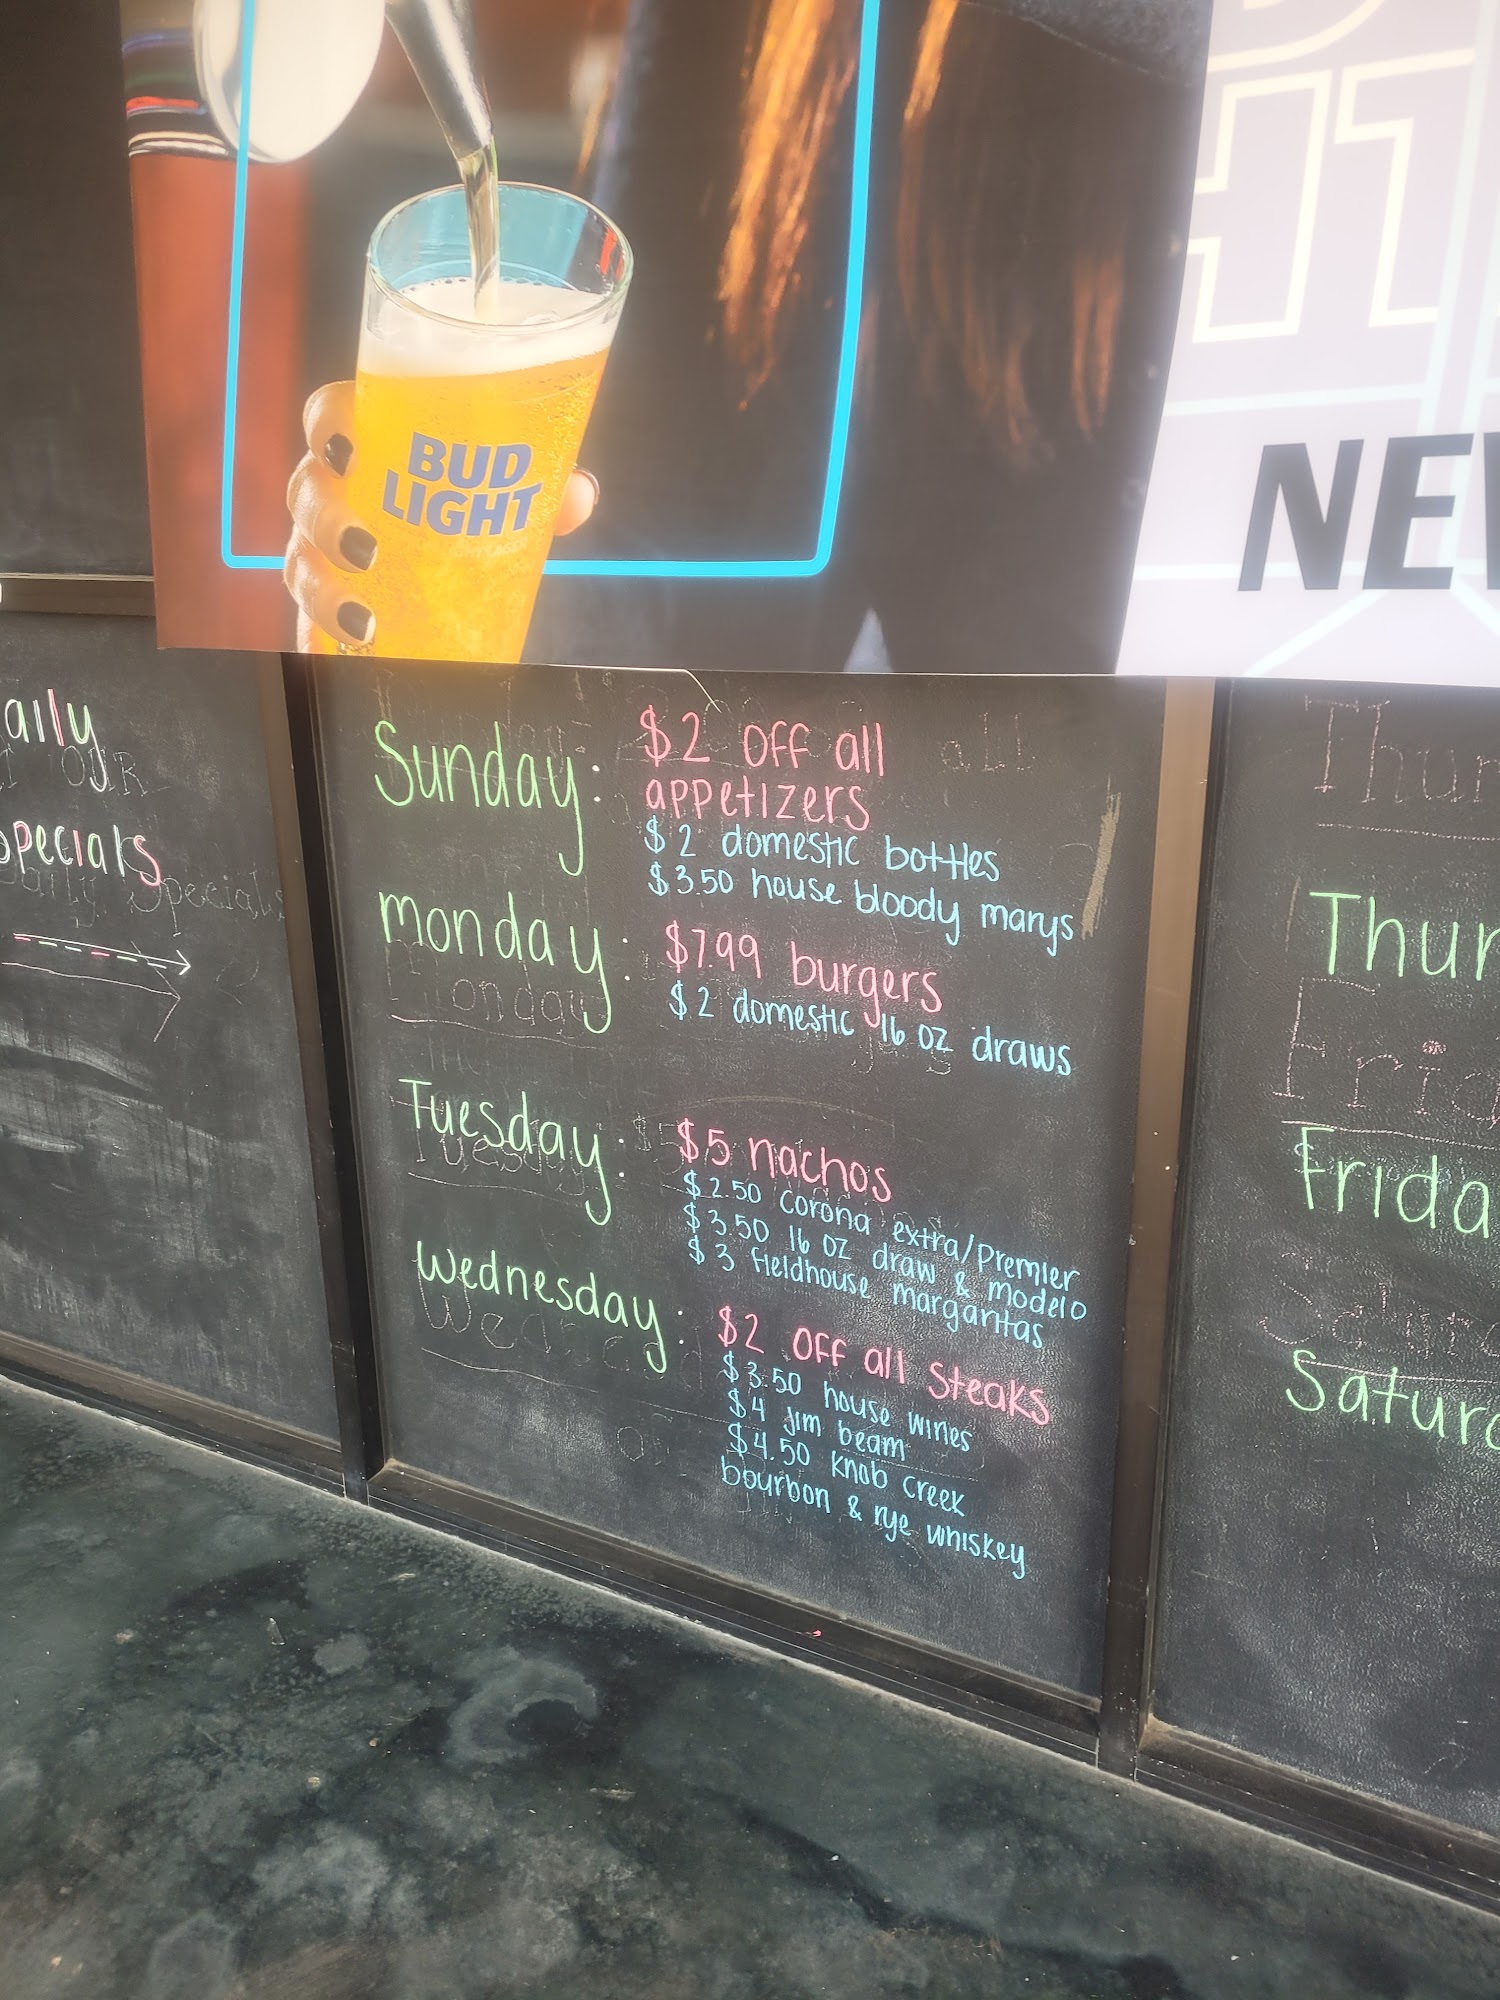 BUD
LIGHT
NEW
aily
specials
Sunday: $2 off all
appetizers
$2 domestic bottles
$3.50 house bloody marys
monday: $7.99 burgers
$2 domestic 16 oz draws
Tuesday: $5 nachos
$2.50 corona extra/Premier
$3.50 16 oz draw & modelo
$3 fieldhouse margaritas
Wednesday: $2 off all steaks
$3.50 house wines
$4 jim beam
$4.50 knob creek
bourbon & rye whiskey
Thur
Frida
Satur